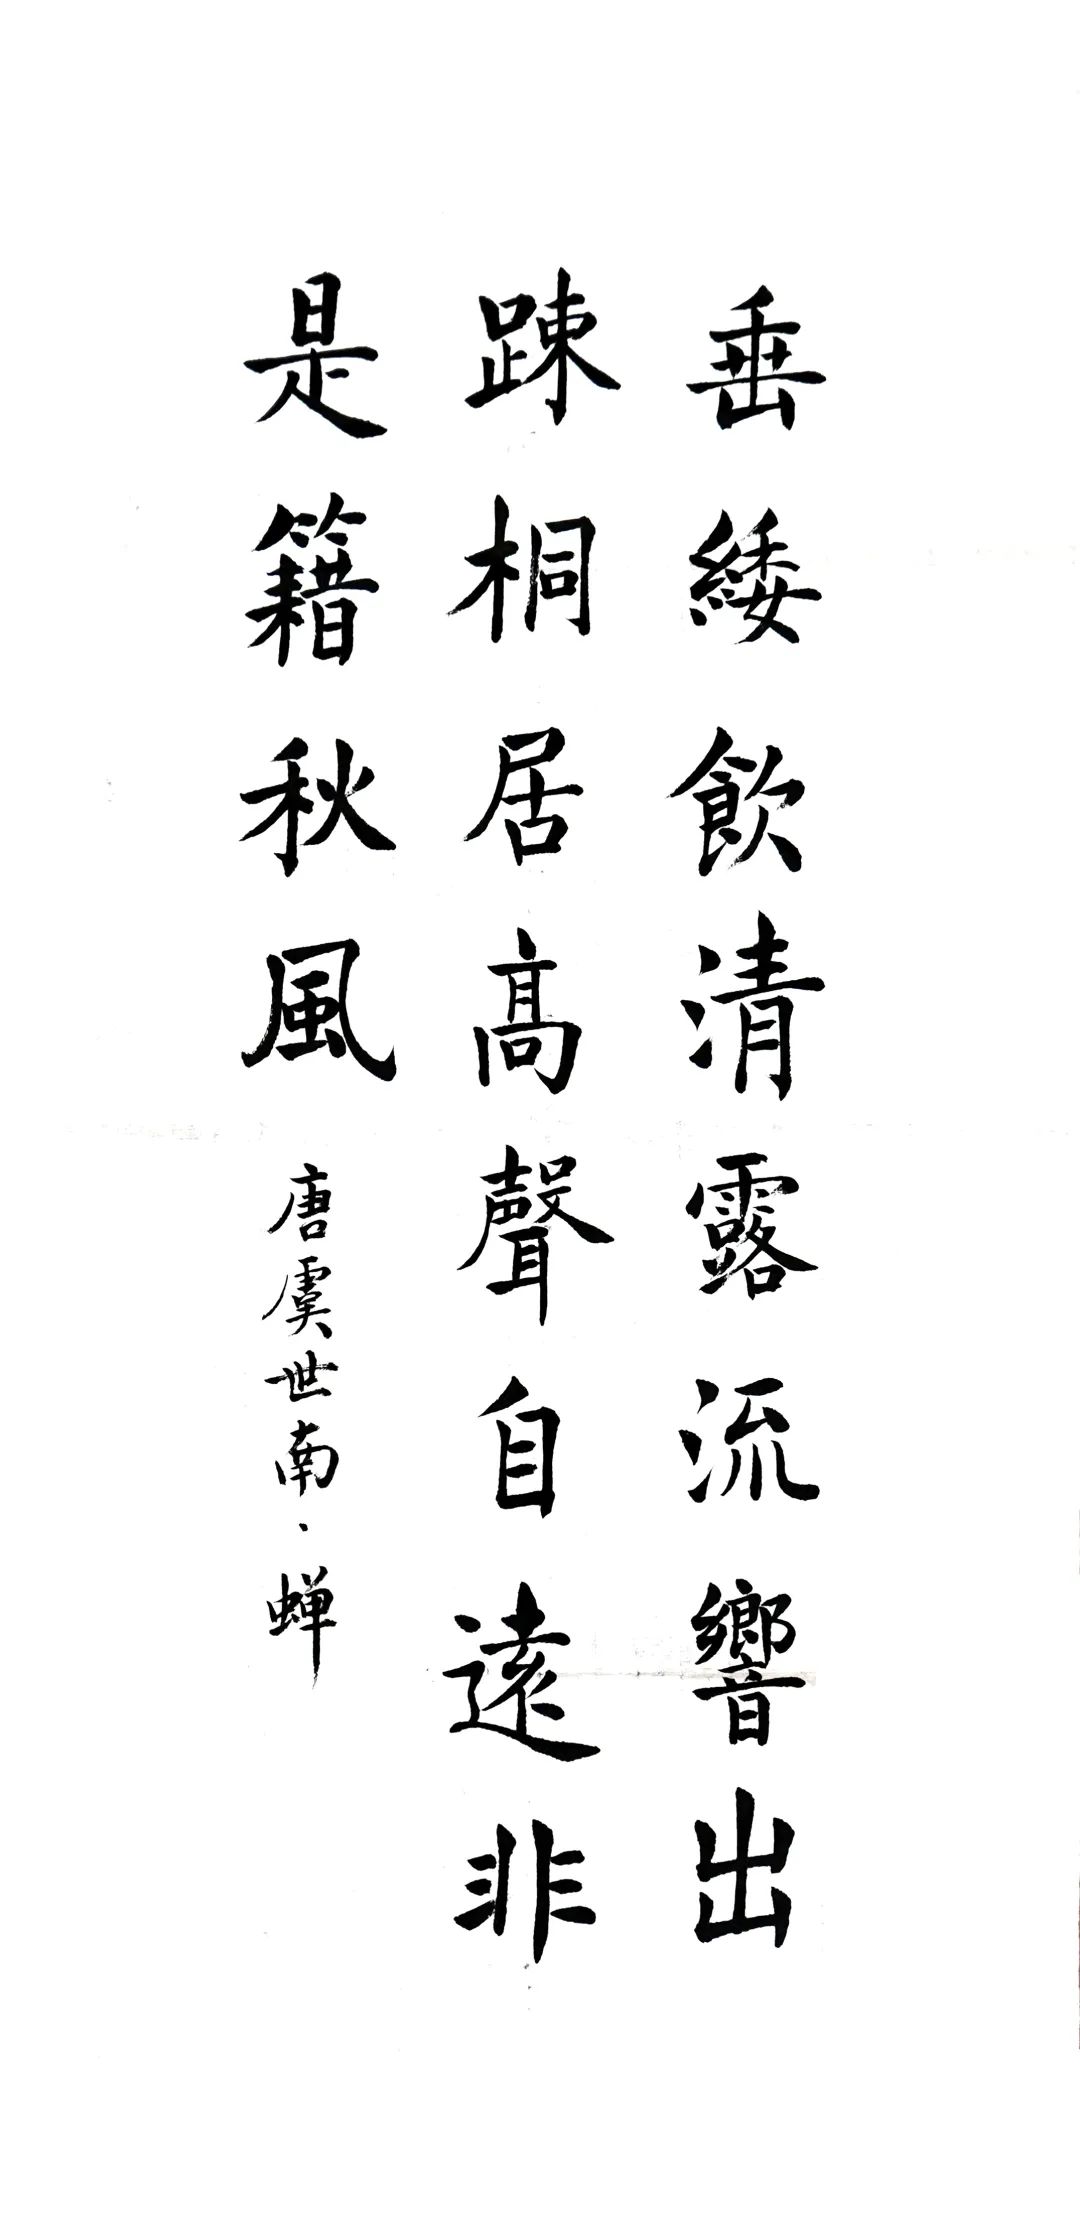 垂緌飲清露流響出
踈桐居高聲自遠非
是籍秋風
唐虞世南·蝉